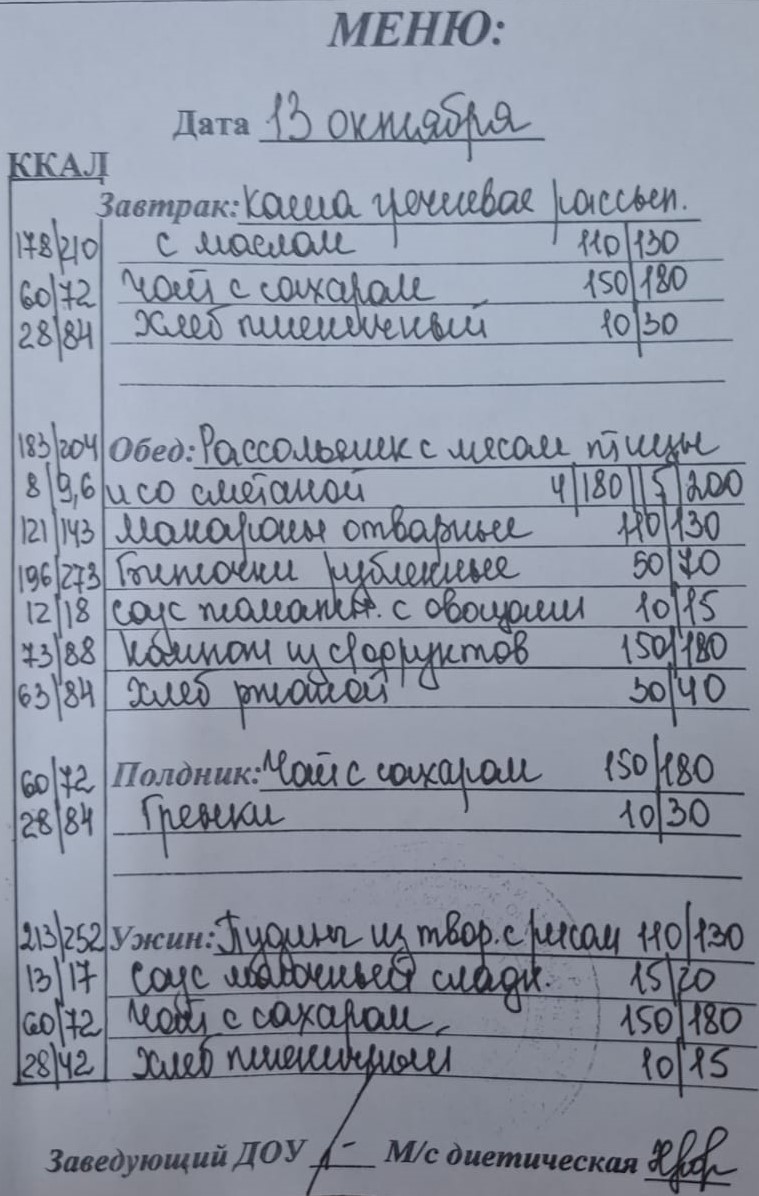 МЕНЮ:
Дата 13 октября
ККАЛ
Завтрак: Каша гречневая рассып.
178/210 с маслом 110/130
60/72 Чай с сахаром 150/180
28/84 Хлеб пшеничный 10/30
183/204 Обед: Рассольник с мясом птицы
8/9,6 и со сметаной 4/180 || 5/200
121/143 Макароны отварные 110/130
196/273 Биточки рубленные 50/70
12/18 Соус томатн. с овощами 10/15
73/88 Компот из с/фруктов 150/180
63/84 Хлеб ржаной 30/40
60/72 Полдник: Чай с сахаром 150/180
28/84 Гренки 10/30
213/252 Ужин: Пудинг из твор. с рисом 110/130
13/17 Соус молочный сладк. 15/20
60/72 Чай с сахаром 150/180
28/42 Хлеб пшеничный 10/15
Заведующий ДОУ М/с диетическая